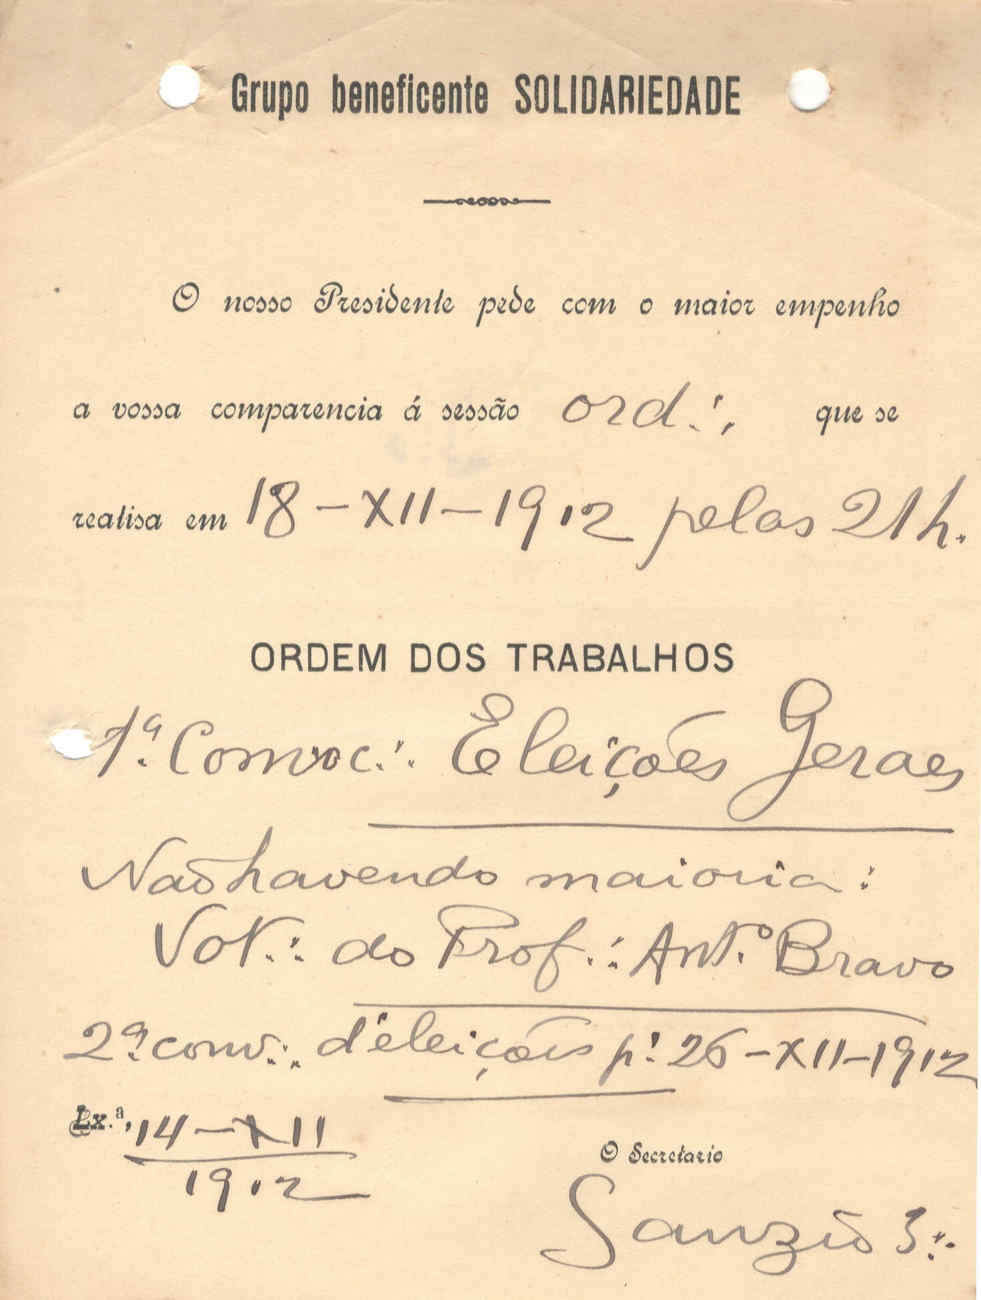 Grupo beneficente SOLIDARIEDADE
O nosso Presidente pede com o maior empenho
a vossa comparencia á sessão ord∴, que se
realisa em 18-XII-1912 pelas 21h.
ORDEM DOS TRABALHOS
1ª Convoc∴ Eleições Geraes
Não havendo maioria:
Vot∴ do Prof∴ Antº Bravo
2ª conv∴ d'eleições pª 26-XII-1912
Lx.ª, 14-XII
1912
O Secretario
Sanzio 3∴